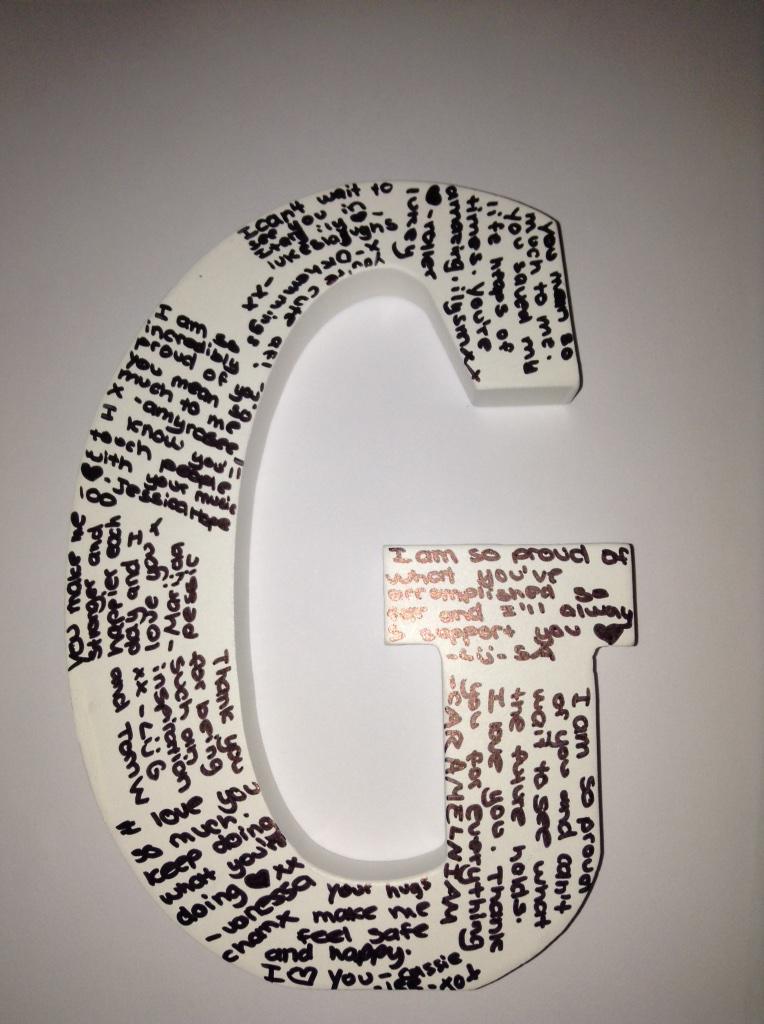 You mean so
much to me.
you saved my
life heaps of
times. you're
amazing. ilysmxx
♥-roller
lukey
I can't wait to
see you in
ily ♥-
lukeslaughs
you're cute af! -
-xx
I am
incredibly
proud of
you mean
much to me
x -amyrose
I know you'll
touch people
with your music
♥
You make me
stronger and
happier each
day and I
love you x
-Marijan
pessie
Thank you
for being
such an
inspiration
xx - LiiG
and TomW
I love you
so much.
keep doing
what you're
doing ♥xx
-vanessa
chanx
your hugs
make me
feel safe
and happy.
I ♡ you - cassie
I am so proud
of you and can't
wait to see what
the future holds.
I love you. Thank
you for everything
-CARAMELNIAM
I am so proud of
what you've
accomplished so
far and I'll alway
s support you ♥